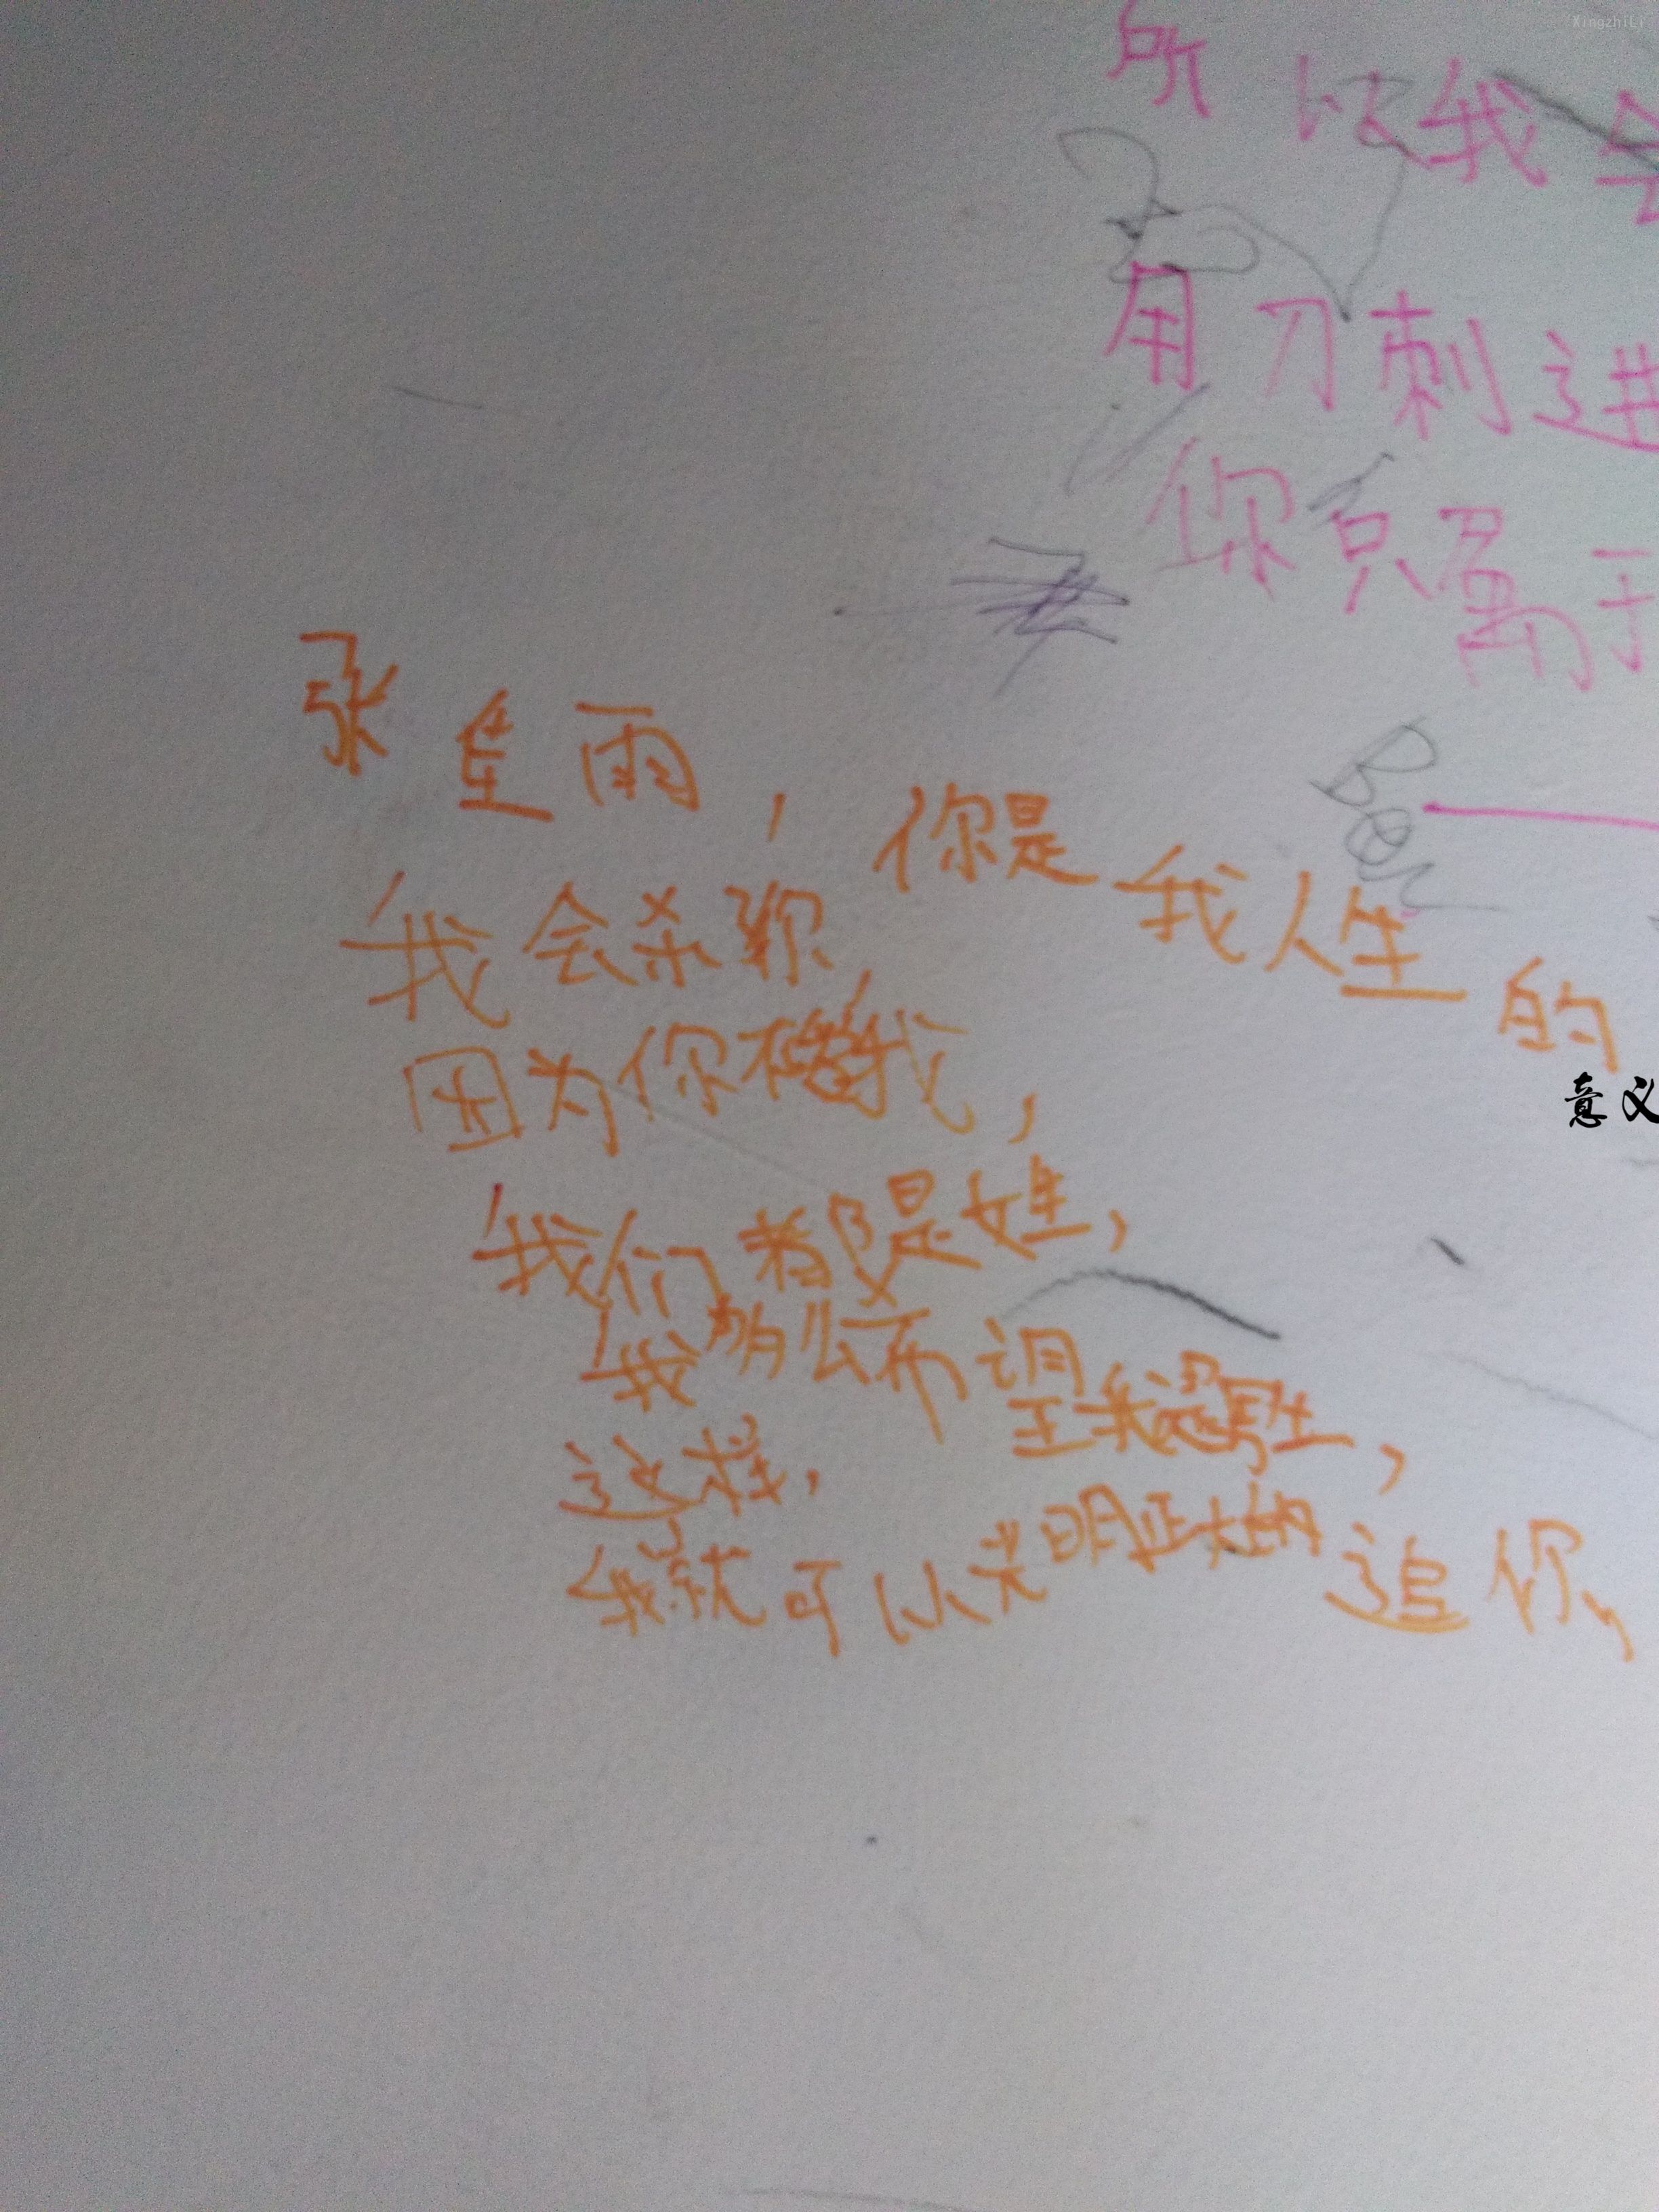 XingzhiLi
所以我会
用刀刺进
你只属于
张星雨，你是我人生的
意义
我会杀你
因为你不爱我，
我们都是女生，
我多么希望我是男生，
这样，
我就可以光明正大的追你，